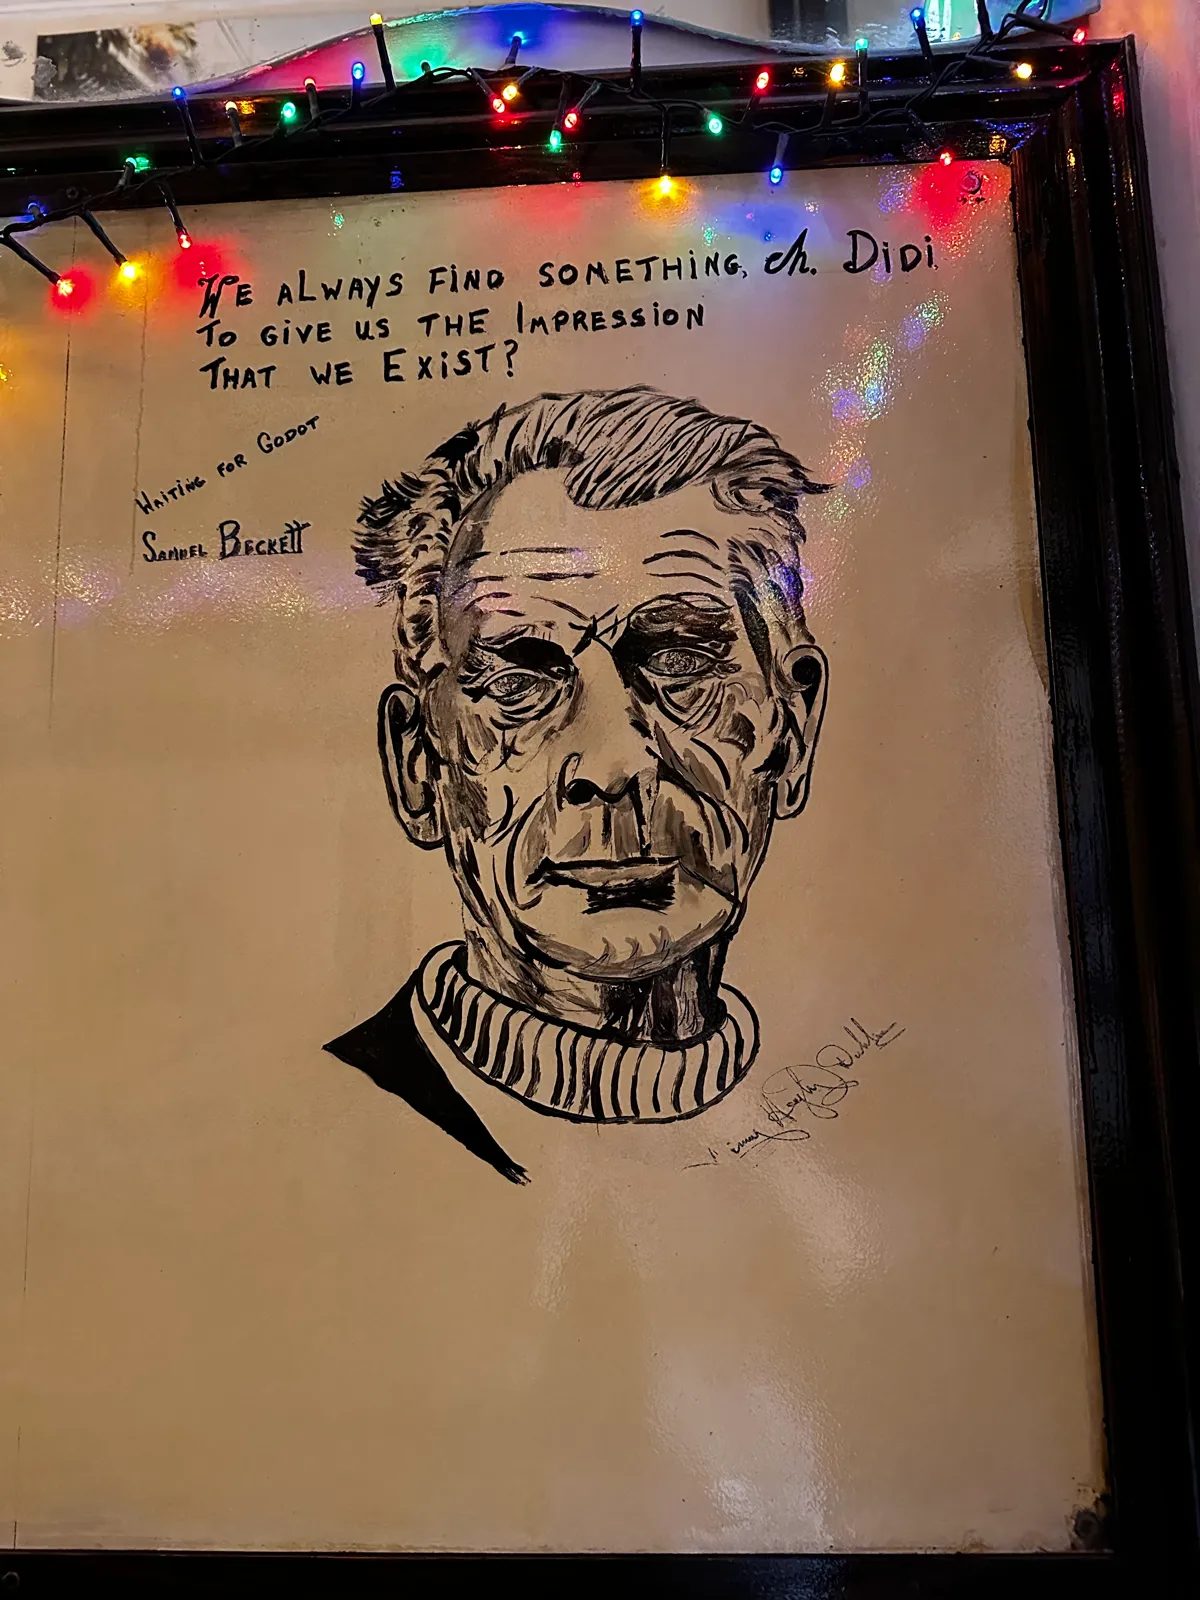 WE ALWAYS FIND SOMETHING, eh. DiDi
TO GIVE US THE IMPRESSION
THAT WE EXIST?
WAITING FOR GODOT
SAMUEL BECKETT